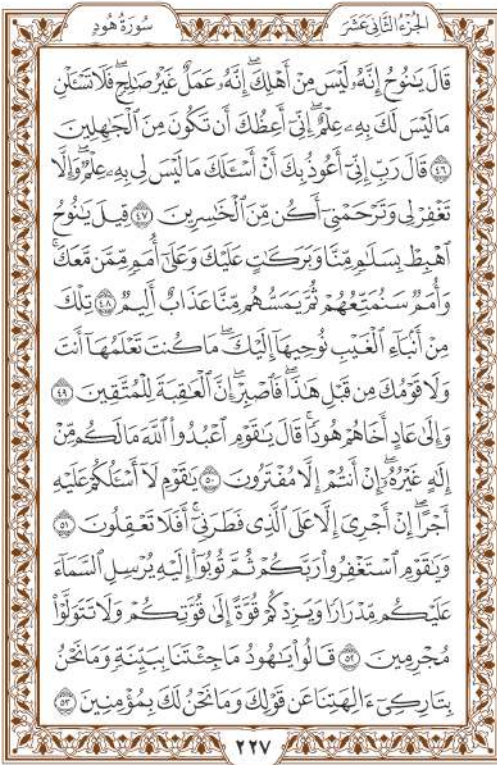 الجزء الثاني عشر
سورة هود
قَالَ يَٰنُوحُ إِنَّهُۥ لَيْسَ مِنْ أَهْلِكَۖ إِنَّهُۥ عَمَلٌ غَيْرُ صَٰلِحٖۖ فَلَا تَسْـَٔلْنِ
مَا لَيْسَ لَكَ بِهِۦ عِلْمٌۖ إِنِّيٓ أَعِظُكَ أَن تَكُونَ مِنَ ٱلْجَٰهِلِينَ
٤٦ قَالَ رَبِّ إِنِّيٓ أَعُوذُ بِكَ أَنْ أَسْـَٔلَكَ مَا لَيْسَ لِي بِهِۦ عِلْمٞۖ وَإِلَّا
تَغْفِرْ لِي وَتَرْحَمْنِيٓ أَكُن مِّنَ ٱلْخَٰسِرِينَ ٤٧ قِيلَ يَٰنُوحُ
ٱهْبِطْ بِسَلَٰمٖ مِّنَّا وَبَرَكَٰتٍ عَلَيْكَ وَعَلَىٰٓ أُمَمٖ مِّمَّن مَّعَكَۚ
وَأُمَمٞ سَنُمَتِّعُهُمْ ثُمَّ يَمَسُّهُم مِّنَّا عَذَابٌ أَلِيمٞ ٤٨ تِلْكَ
مِنْ أَنۢبَآءِ ٱلْغَيْبِ نُوحِيهَآ إِلَيْكَۖ مَا كُنتَ تَعْلَمُهَآ أَنتَ
وَلَا قَوْمُكَ مِن قَبْلِ هَٰذَاۖ فَٱصْبِرْۖ إِنَّ ٱلْعَٰقِبَةَ لِلْمُتَّقِينَ ٤٩
وَإِلَىٰ عَادٍ أَخَاهُمْ هُودٗاۚ قَالَ يَٰقَوْمِ ٱعْبُدُواْ ٱللَّهَ مَا لَكُم مِّنْ
إِلَٰهٍ غَيْرُهُۥٓۖ إِنْ أَنتُمْ إِلَّا مُفْتَرُونَ ٥٠ يَٰقَوْمِ لَآ أَسْـَٔلُكُمْ عَلَيْهِ
أَجْرًاۖ إِنْ أَجْرِيَ إِلَّا عَلَى ٱلَّذِي فَطَرَنِيٓۚ أَفَلَا تَعْقِلُونَ ٥١
وَيَٰقَوْمِ ٱسْتَغْفِرُواْ رَبَّكُمْ ثُمَّ تُوبُوٓاْ إِلَيْهِ يُرْسِلِ ٱلسَّمَآءَ
عَلَيْكُم مِّدْرَارٗا وَيَزِدْكُمْ قُوَّةً إِلَىٰ قُوَّتِكُمْ وَلَا تَتَوَلَّوْاْ
مُجْرِمِينَ ٥٢ قَالُواْ يَٰهُودُ مَا جِئْتَنَا بِبَيِّنَةٖ وَمَا نَحْنُ
بِتَارِكِيٓ ءَالِهَتِنَا عَن قَوْلِكَ وَمَا نَحْنُ لَكَ بِمُؤْمِنِينَ ٥٣
٢٢٧